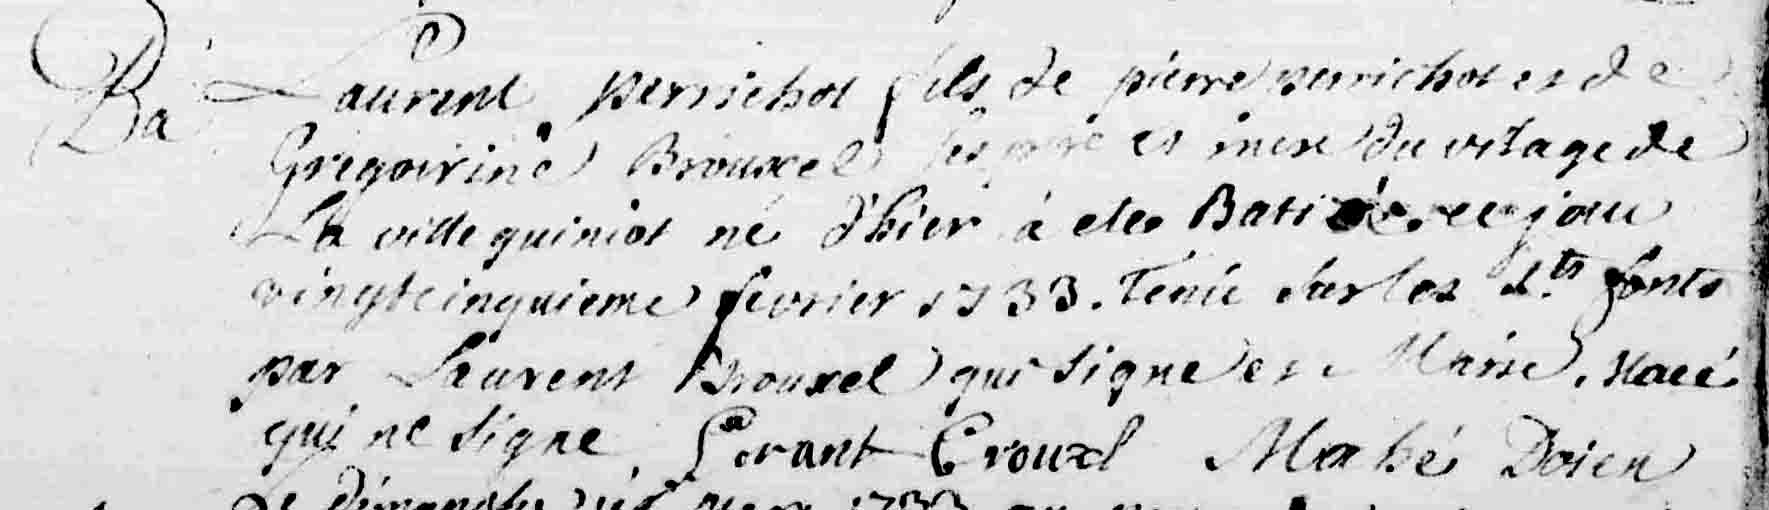 Ba
Laurent perrichot fils de pierre perrichot et de
Gregoirine Brouxel ses pere et mere du vilage de
La ville quiniot né d'hier à eté Batisé ce jour
vingtcinquieme fevrier 1733. Tenu sur les Sts fonts
par Laurent Brouxel qui signe et Marie Macé
qui ne signe. Lorant Brouxel Mahé Doien
Le dimanche 1733